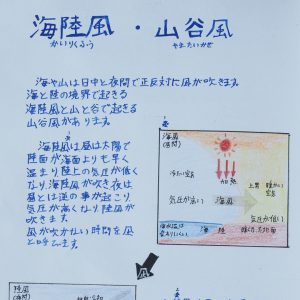 海陸風・山谷風
かいりくふう やまたにかぜ
海や山は日中と夜間で正反対に風が吹きます。
海と陸の境界で起きる
海陸風と山と谷で起きる
山谷風があります。
海陸風は昼は太陽で
陸面が海面よりも早く
温まり陸上の気圧が低く
なり海風が吹き夜は
昼とは逆の事が起こり
気圧が高くなり陸風が
吹きます。
風が吹かない時間を凪
と呼びます。
海風
(昼間)
冷たい空気
加熱
上昇 暖かい
空気
気圧が高い
海風
気圧が低い
海 陸
凪
陸風
(夜間)